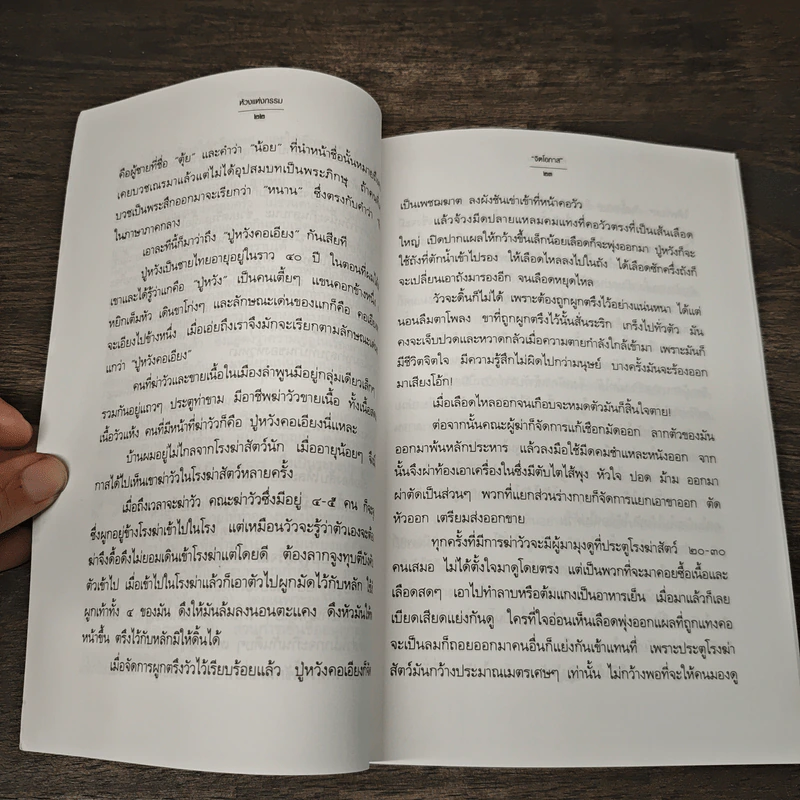 ห้วงแห่งกรรม
๒๒
คือผู้ชายที่ชื่อ "ตุ้ย" และคำว่า "น้อย" ที่นำหน้าชื่อนั้นหมายถึง
เคยบวชเณรมาแล้วแต่ไม่ได้อุปสมบทเป็นพระภิกษุ ถ้า
บวชเป็นพระสึกออกมาจะเรียกว่า "หนาน" ซึ่งตรงกับคำว่า
ในภาษาภาคกลาง
เอาละทีนี้ก็มาว่าถึง "ปู่หวังคอเอียง" กันเสียที
ปู่หวังเป็นชายไทยอายุอยู่ในราว ๔๐ ปี ในตอนที่
เขาและได้รู้ว่าแกคือ "ปู่หวัง" เป็นคนเตี้ยๆ แขนคอกข้างหนึ่ง
หยิกเต็มหัว เดินขาโก่งๆ และลักษณะเด่นของแกก็คือ
จะเอียงไปข้างหนึ่ง เมื่อเอ่ยถึงเราจึงมักจะเรียกตามลักษณะ
แกว่า "ปู่หวังคอเอียง"
คนที่ฆ่าวัวและขายเนื้อในเมืองลำพูนมีอยู่กลุ่มเดียว
รวมกันอยู่แถวๆ ประตูท่าขาม มีอาชีพฆ่าวัวขายเนื้อ ทั้งเนื้อ
เนื้อวัวแห้ง คนที่มีหน้าที่ฆ่าวัวก็คือ ปู่หวังคอเอียงนี่แหละ
บ้านผมอยู่ไม่ไกลจากโรงฆ่าสัตว์นัก เมื่ออายุน้อยๆ
กาสได้ไปเห็นเขาฆ่าวัวในโรงฆ่าสัตว์หลายครั้ง
เมื่อถึงเวลาจะฆ่าวัว คณะฆ่าวัวซึ่งมีอยู่ ๔-๕ คน
ซึ่งผูกอยู่ข้างโรงฆ่าเข้าไปในโรง แต่เหมือนวัวจะรู้ว่าตัวเองจะ
ฆ่าจึงดื้อดึงไม่ยอมเดินเข้าโรงฆ่าแต่โดยดี ต้องลากจูงทุบตี
ตัวเข้าไป เมื่อเข้าไปในโรงฆ่าแล้วก็เอาตัวไปผูกมัดไว้กับหลัก
ผูกเท้าทั้ง ๔ ของมัน ดึงให้มันล้มลงนอนตะแคง ดึงหัวมัน
หน้าขึ้น ตรึงไว้กับหลักมิให้ดิ้นได้
เมื่อจัดการผูกตรึงวัวไว้เรียบร้อยแล้ว ปู่หวังคอเอียง
"จิตโอภาส"
๒๓
เป็นเพชฌฆาต ลงผังชันเข่าเข้าที่หน้าคอวัว
แล้วจ้วงมีดปลายแหลมคมแทงที่คอวัวตรงที่เป็นเส้นเลือด
ใหญ่ เปิดปากแผลให้กว้างขึ้นเล็กน้อยเลือดก็จะพุ่งออกมา ปู่หวังก็จะ
ใช้ถังที่ตักน้ำเข้าไปรอง ให้เลือดไหลลงไปในถัง ได้เลือดซักครึ่งถังก็
จะเปลี่ยนเอาถังมารองอีก จนเลือดหยุดไหล
วัวจะดิ้นก็ไม่ได้ เพราะต้องถูกผูกตรึงไว้อย่างแน่นหนา ได้แต่
นอนลืมตาโพลง ขาที่ถูกผูกตรึงไว้นั้นสั่นระริก เกร็งไปทั่วตัว มัน
คงจะเจ็บปวดและหวาดกลัวเมื่อความตายกำลังใกล้เข้ามา เพราะมันก็
มีชีวิตจิตใจ มีความรู้สึกไม่ผิดไปกว่ามนุษย์ บางครั้งมันจะร้องออก
มาเสียงโอ้ก!
เมื่อเลือดไหลออกจนเกือบจะหมดตัวมันก็สิ้นใจตาย!
ต่อจากนั้นคณะผู้ฆ่าก็จัดการแก้เชือกมัดออก ลากตัวของมัน
ออกมาพ้นหลักประหาร แล้วลงมือใช้มีดคมชำแหละหนังออก จาก
นั้นจึงผ่าท้องเอาเครื่องในซึ่งมีตับไตไส้พุง หัวใจ ปอด ม้าม ออกมา
ผ่าตัดเป็นส่วนๆ พวกที่แยกส่วนร่างกายก็จัดการแยกเอาขาออก ตัด
หัวออก เตรียมส่งออกขาย
ทุกครั้งที่มีการฆ่าวัวจะมีผู้มามุงดูที่ประตูโรงฆ่าสัตว์ ๒๐-๓๐
คนเสมอ ไม่ได้ตั้งใจมาดูโดยตรง แต่เป็นพวกที่จะมาคอยซื้อเนื้อและ
เลือดสดๆ เอาไปทำลาบหรือต้มแกงเป็นอาหารเย็น เมื่อมาแล้วก็เลย
เบียดเสียดแย่งกันดู ใครที่ใจอ่อนเห็นเลือดพุ่งออกแผลที่ถูกแทงคอ
จะเป็นลมก็ถอยออกมาคนอื่นก็แย่งกันเข้าแทนที่ เพราะประตูโรงฆ่า
สัตว์มันกว้างประมาณเมตรเศษๆ เท่านั้น ไม่กว้างพอที่จะให้คนมองดู